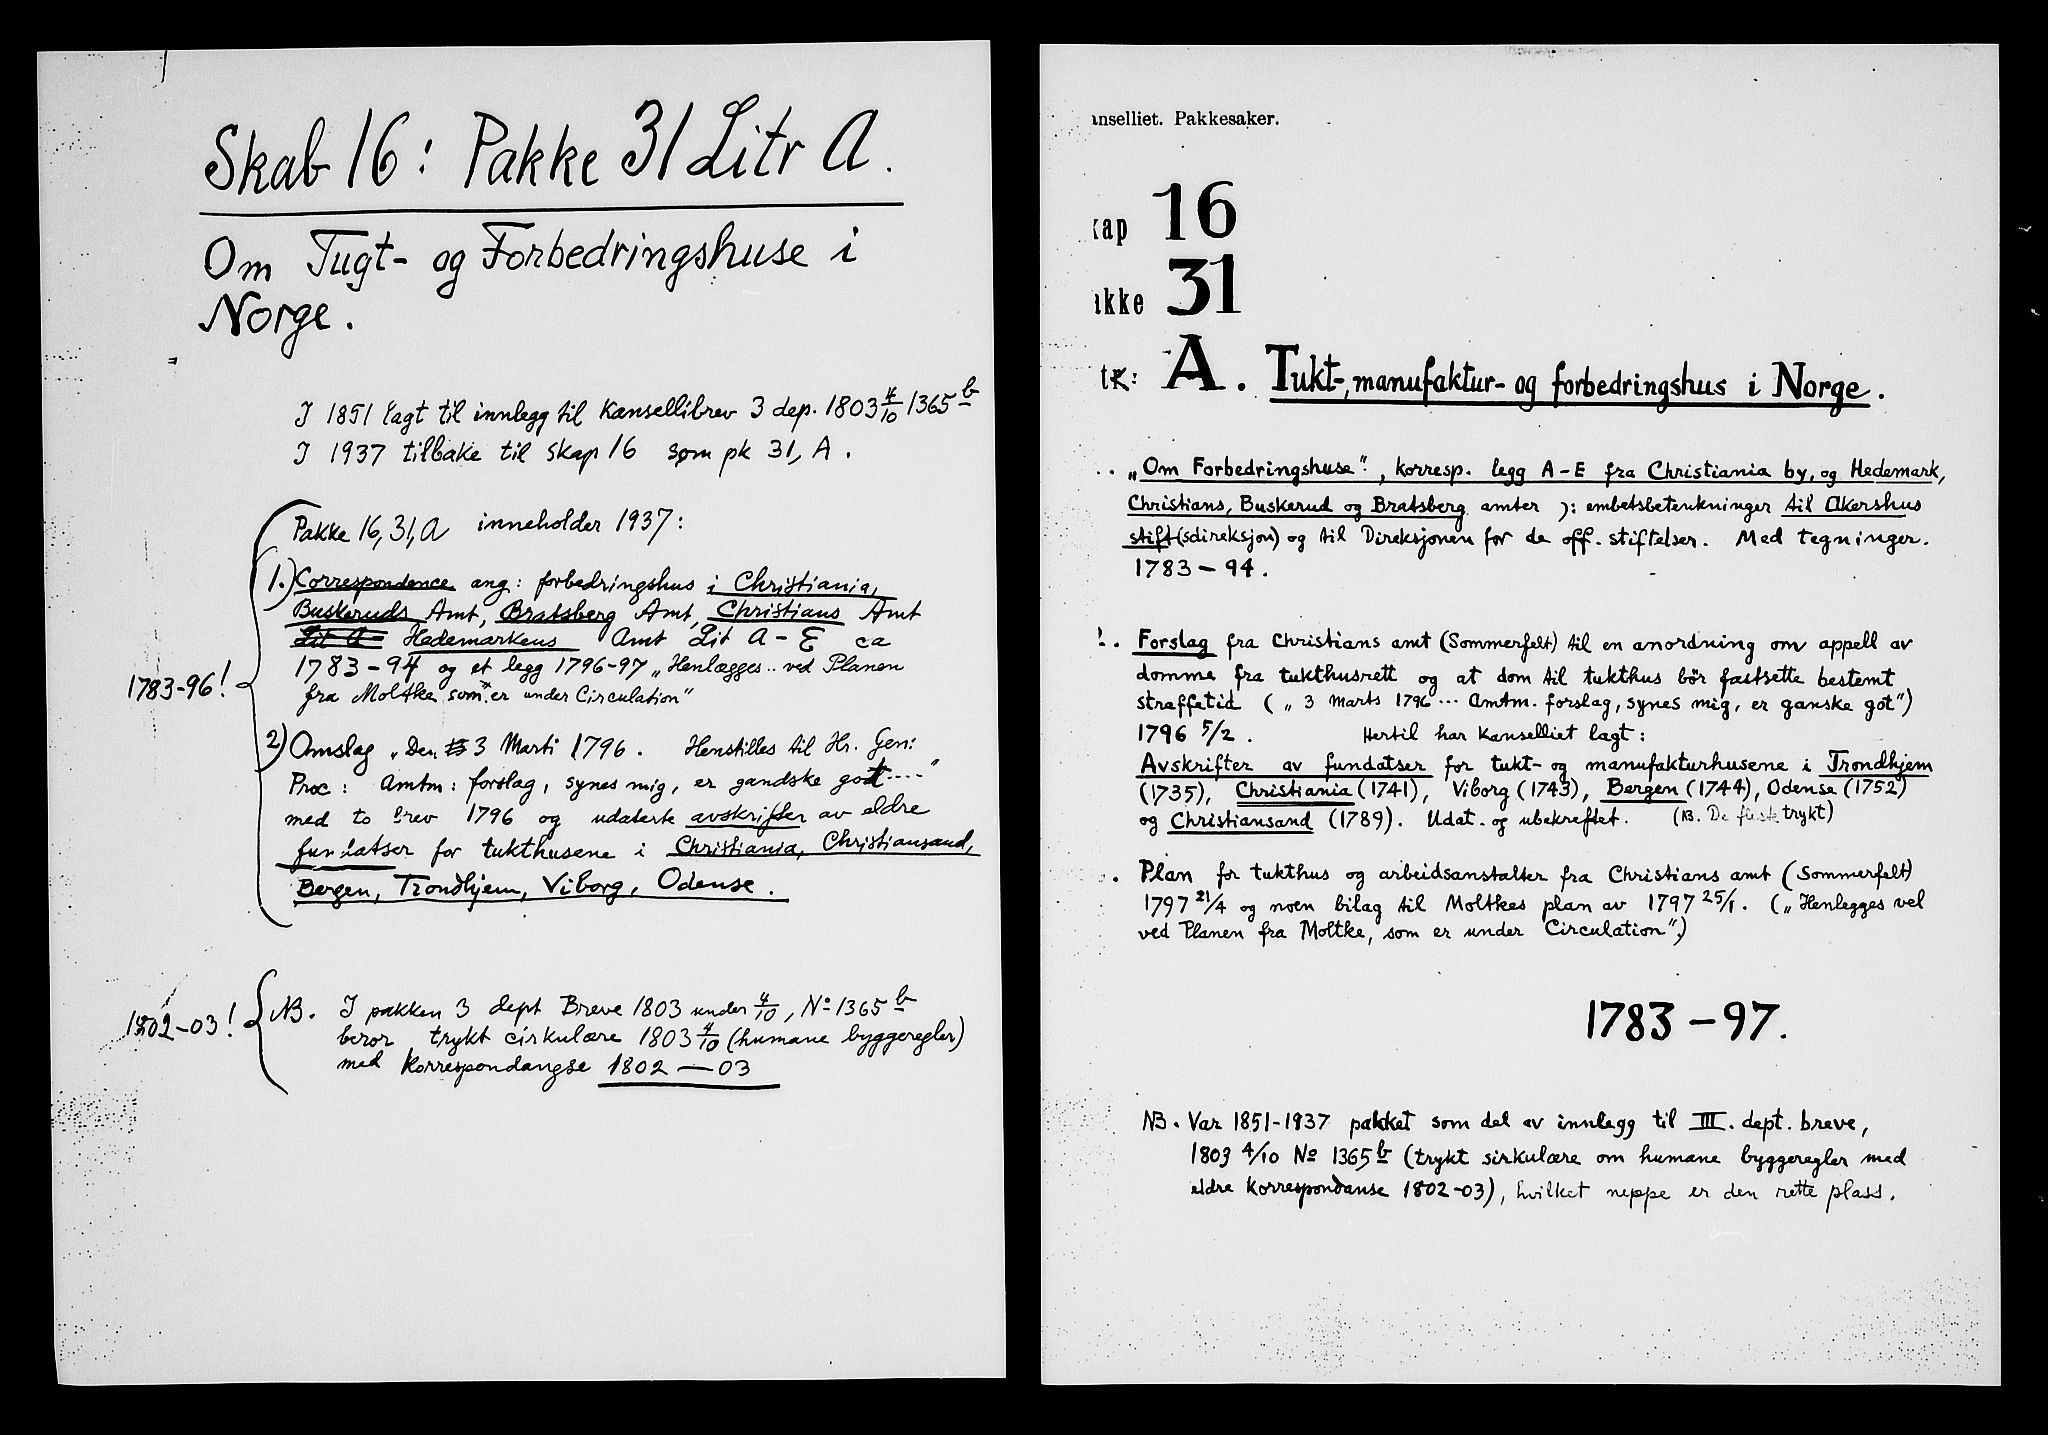 Skab 16: Pakke 31 Litr A.
Om Tugt- og Forbedringshuse i
Norge.
I 1851 lagt til innlegg til Kansellibrev 3 dep. 1803 4/10 1365 b
I 1937 tilbake til skap 16 som pk 31, A.
Pakke 16, 31, A inneholder 1937:
1.) Correspondence ang: forbedringshus i Christiania,
Buskeruds Amt, Bratsberg Amt, Christians Amt
Lit A Hedemarkens Amt Lit A-E ca
1783-94 og et legg 1796-97 „Henlægges.. ved Planen
1783-96!
fra Moltke som er under Circulation"
2) Omslag „Den 3 Marti 1796. Henstilles til Hr. Gen:
Proc: Amtm: forslag, synes mig, er gandske godt....."
med to brev 1796 og udaterte avskrifter av eldre
fundatser for tukthusene i Christiania, Christiansand,
Bergen, Trondhjem, Viborg, Odense.
1802-03!
NB. I pakken 3 dept Breve 1803 under 4/10, No 1365 b
beror trykt cirkulære 1803 4/10 (humane byggeregler)
med Korrespondangse 1802-03
anselliet. Pakkesaker.
kap 16
akke 31
tr: A. Tukt-, manufaktur- og forbedringshus i Norge.
„Om Forbedringshuse", korresp. legg A-E fra Christiania by, og Hedemark,
Christians, Buskerud og Bratsberg amter ɔ: embetsbetenkninger til Akershus
stift(sdireksjon) og til Direksjonen for de off. stiftelser. Med tegninger.
1783-94.
. Forslag fra Christians amt (Sommerfelt) til en anordning om appell av
domme fra tukthusrett og at dom til tukthus bör fastsette bestemt
straffetid („3 Marts 1796... Amtm. forslag, synes mig, er ganske got")
1796 5/2. Hertil har Kanselliet lagt:
Avskrifter av fundatser for tukt- og manufakturhusene i Trondhjem
(1735), Christiania (1741), Viborg (1743), Bergen (1744), Odense (1752)
og Christiansand (1789). Udat. og ubekreftet. (NB. De fleste trykt)
. Plan for tukthus og arbeidsanstalter fra Christians amt (Sommerfelt)
1797 21/4 og noen bilag til Moltkes plan av 1797 25/1. („Henlegges vel
ved Planen fra Moltke, som er under Circulation".)
1783-97.
NB. Var 1851-1937 pakket som del av innlegg til III. dept. breve,
1803 4/10 No 1365 b (trykt sirkulære om humane byggeregler med
eldre Korrespondanse 1802-03), hvilket neppe er den rette plass.